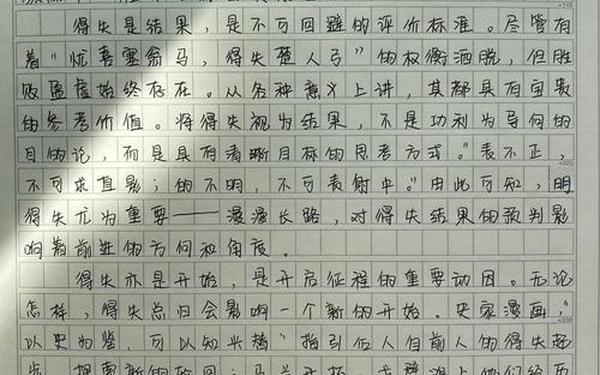 得失是结果，是不可回避的评价标准。尽管有
着“忧喜塞翁马，得失楚人弓”的权衡洒脱，但胜
败盈虚始终存在。从各种意义上讲，其都具有宝贵
的参考价值。将得失视为结果，不是功利为导向的
目的论，而是具有清晰目标的思考方式。“表不正，
不可求直影；的不明，不可责射中。”由此可知，明
得失尤为重要——漫漫长路，对得失结果的预判影
响着前进的方向和角度。
得失亦是开始，是开启征程的重要动因。无论
怎样，得失总归会影响一个新的开始。史家漫画，“
以史为鉴，可以知兴替”指引后人自前人的得失起
步，探索新的